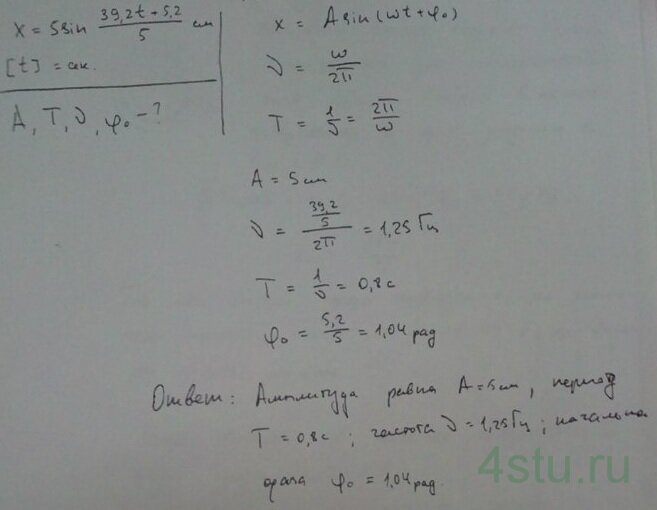 x = 5 sin (39,2t + 5,2)/5 см
[t] = сек.
A, T, ν, φ₀ - ?
x = A sin(ωt + φ₀)
ν = ω/2π
T = 1/ν = 2π/ω
A = 5 см
ν = (39,2/5)/2π = 1,25 Гц
T = 1/ν = 0,8 с
φ₀ = 5,2/5 = 1,04 рад
Ответ: Амплитуда равна A = 5 см, период
T = 0,8 с; частота ν = 1,25 Гц; начальна
фаза φ₀ = 1,04 рад.
4stu.ru